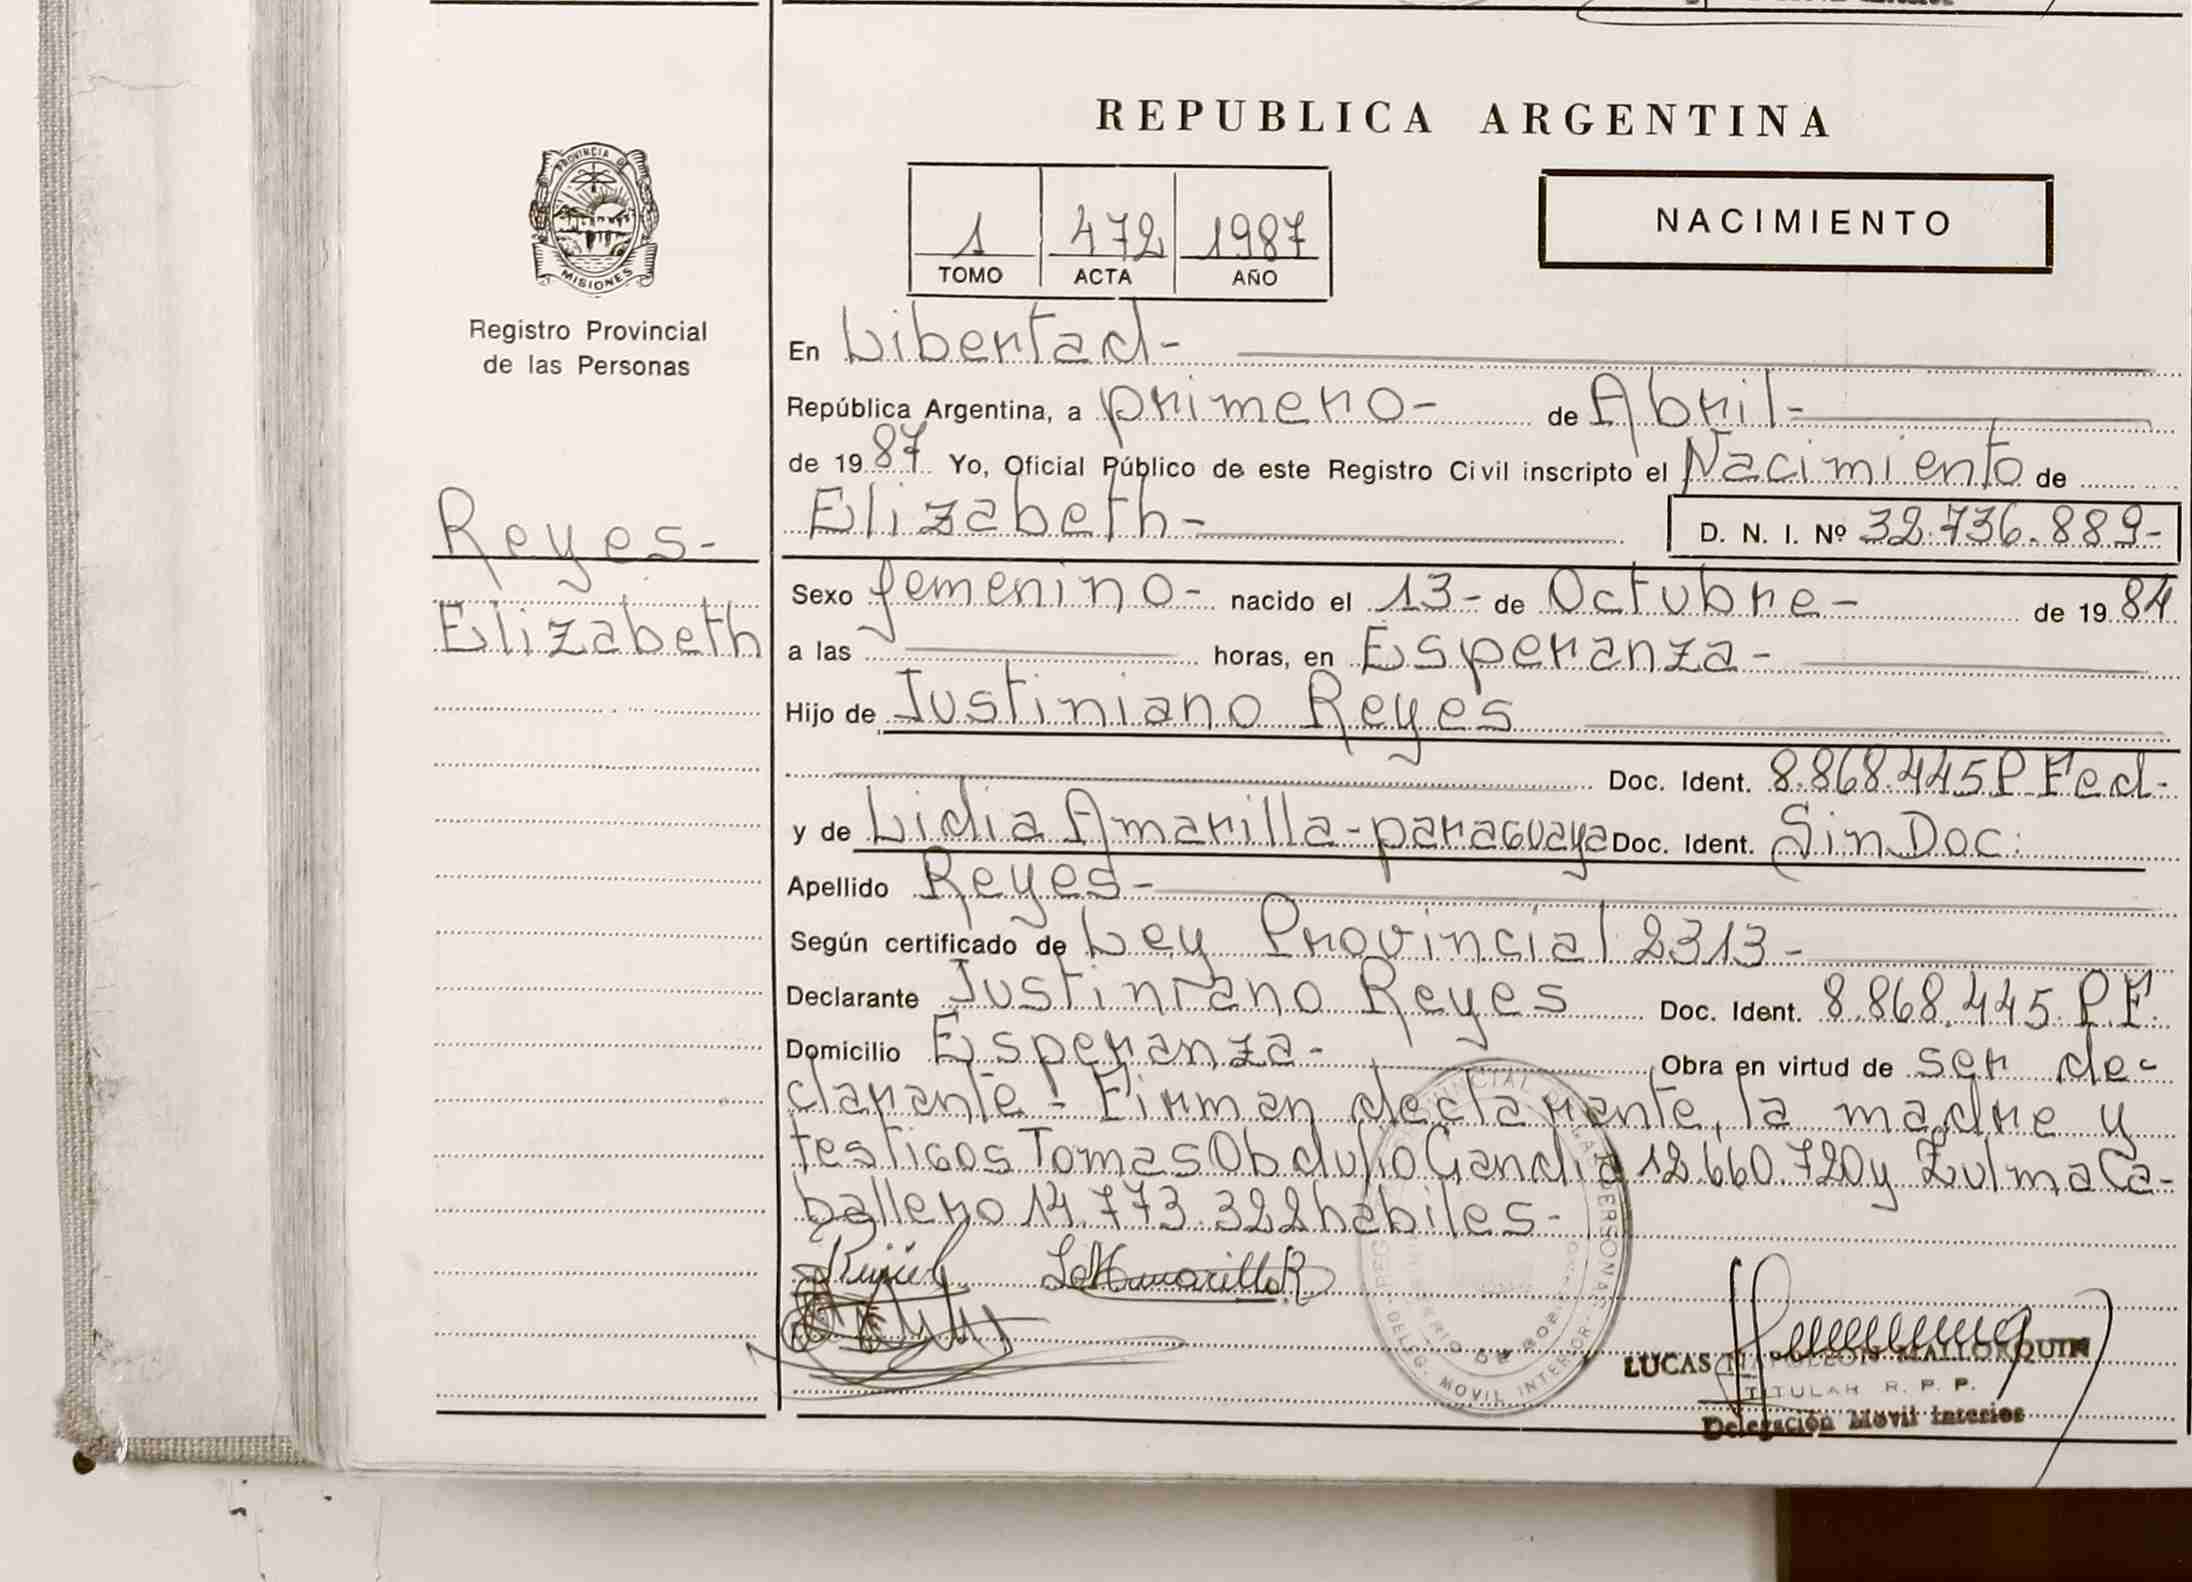 REPUBLICA ARGENTINA
PROVINCIA D
MISIONES
Registro Provincial
de las Personas
1 472 1987
TOMO ACTA AÑO
NACIMIENTO
En Libertad-
República Argentina, a primero- de Abril-
de 1987 Yo, Oficial Público de este Registro Civil inscripto el Nacimiento de
Elizabeth- D. N. I. Nº 32.736.889-
Reyes-
Elizabeth
Sexo femenino- nacido el 13- de Octubre- de 1984
a las horas, en Esperanza-
Hijo de Justiniano Reyes
Doc. Ident. 8.868.445 P Fed-
y de Lidia Amarilla-paraguaya Doc. Ident. Sin Doc.
Apellido Reyes-
Según certificado de Ley Provincial 2313-
Declarante Justiniano Reyes Doc. Ident. 8.868.445.P.F.
Domicilio Esperanza- Obra en virtud de ser de-
clarante- Firman declarante, la madre y
testigos Tomas Obdulio Gandia 12.660.720 y Zulma Ca-
ballero 14.773.322 habiles-
LUCAS NAPOLEON MALLORQUIN
TITULAR R. P. P.
Delegación Movil Interior
DELEG. MOVIL INTERIOR